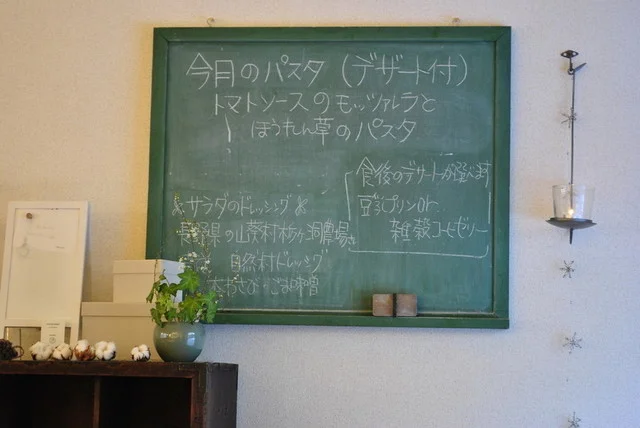 今月のパスタ（デザート付）
トマトソースのモッツァレラと
ほうれん草のパスタ
食後のデザートが選べます
豆乳プリンorト
雑穀コーヒーゼリー
サラダのドレッシング
長野県の山葵村
自然村ドレッシング
本わさび・ごま味噌